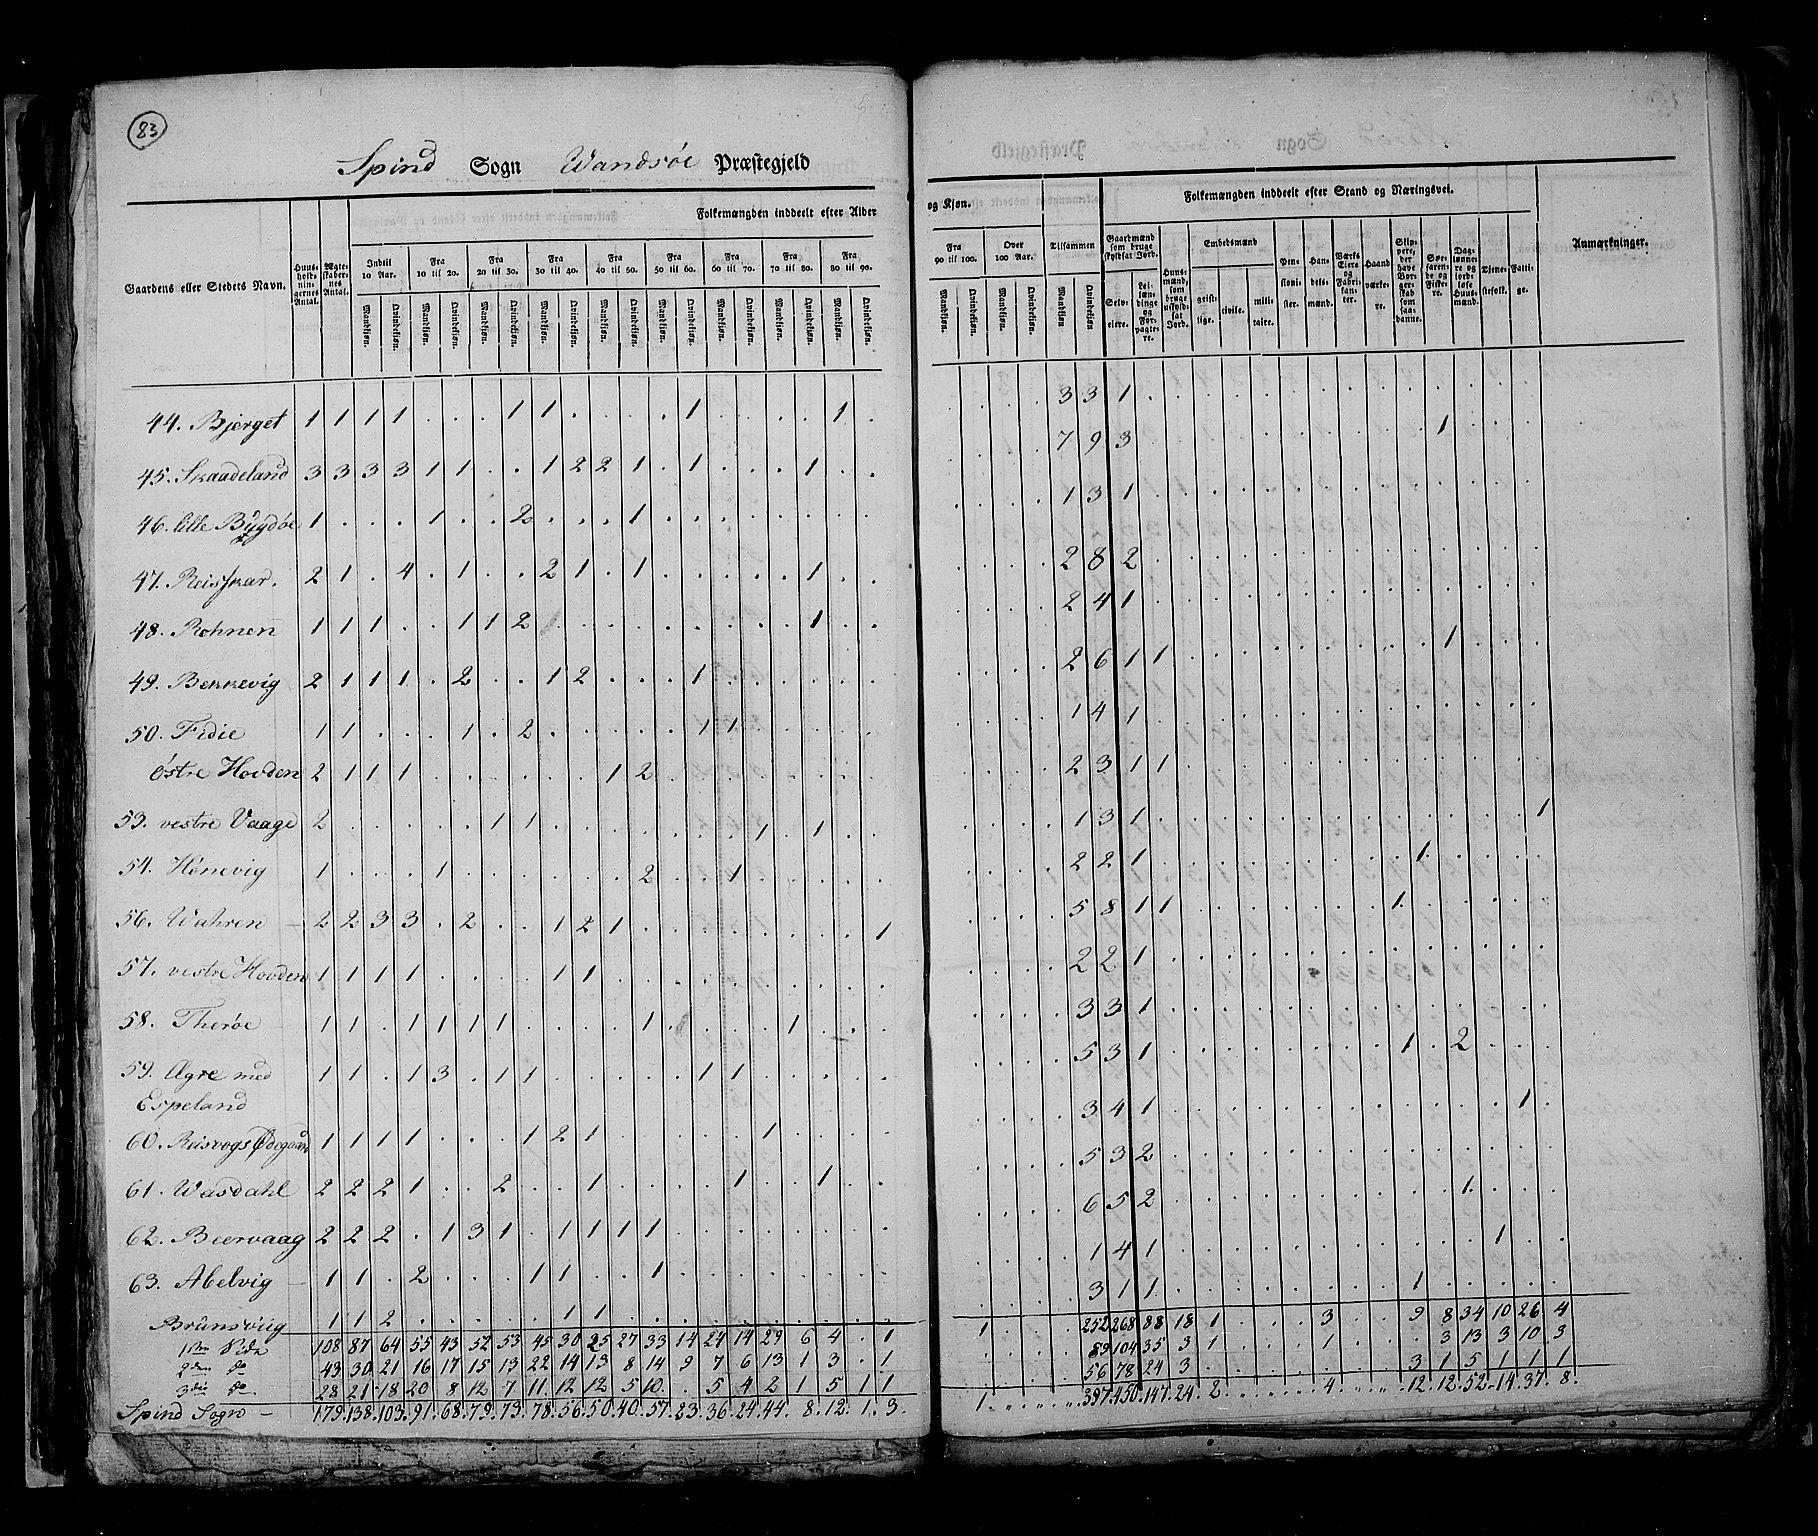 83
Spind Sogn Wandsøe Præstegjeld
Folkemængden inddeelt efter Alder og Kjøn. Folkemængden inddeelt efter Stand og Næringsvei.
Gaardens eller Stedets Navn. Huusholdningernes Antal. Ægteskabernes Antal. Indtil 10 Aar. Fra 10 til 20. Fra 20 til 30. Fra 30 til 40. Fra 40 til 50. Fra 50 til 60. Fra 60 til 70. Fra 70 til 80. Fra 80 til 90. Fra 90 til 100. Over 100 Aar. Tilsammen Gaardmænd som bruge skyldsat Jord. Huusmænd, som bruge uskyldsat Jord. Embedsmænd Pensionister. Handelsmænd. Værks Eiere og Fabrikanter. Haandværkere. Skippere, der have Borgerskab som saadanne. Søefarende og Fiskere. Daglønnere og jordløse Huusmænd. Tjenestefolk. Fattige. Anmærkninger.
Mandkjøn. Qvindekjøn. Mandkjøn. Qvindekjøn. Mandkjøn. Qvindekjøn. Mandkjøn. Qvindekjøn. Mandkjøn. Qvindekjøn. Mandkjøn. Qvindekjøn. Mandkjøn. Qvindekjøn. Mandkjøn. Qvindekjøn. Mandkjøn. Qvindekjøn. Mandkjøn. Qvindekjøn. Mandkjøn. Qvindekjøn. Mandkjøn Qvindekjøn Selveiere. Leilændinge og Forpagtere. geistlige. civile. militaire.
44. Bjerget 1 1 1 1 . . . 1 1 . . . . 1 . . . . 1 . . . . . 3 3 1
45. Skaadeland 3 3 3 3 1 1 . . 1 2 2 1 . 1 . . . 1 . . . . . . 7 9 3 1
46. lille Bygdøe 1 . . . 1 . . 2 . . . 1 . . . . . . . . . . . . 1 3 1
47. Reisskar. 2 1 . 4 . 1 . . 2 1 . 1 . . . . . 1 . . . . . . 2 8 2
48. Rohnen 1 1 1 . . 1 1 2 . . . . . . . . . 1 . . . . . . 2 4 1 1
49. Bekkevig 2 1 1 1 . 2 . . 1 2 . . . 1 . . . . . . . . . . 2 6 1 1
50. Fidie 1 1 . . . 1 . 2 . . . . . 1 1 . . . . . . . . . 1 4 1
Østre Hovden 2 1 1 1 . . . . . . 1 2 . . . . . . . . . . . . 2 3 1 1
53. vestre Vaage 2 . . . . . 1 1 . . . . . . . 1 . 1 . . . . . . 1 3 1 1
54. Hønevig 1 . . . 1 . . . . . . 2 . . 1 . . . . . . . . . 2 2 1 1
56. Wahren 2 2 3 3 . 2 . . 1 2 1 . . . . . . . . 1 . . . . 5 8 1 1 1
57. vestre Hovden 1 1 1 1 . . . . 1 1 . . . . . . . . . . . . . . 2 2 1
58. Therøe 1 1 . 1 1 1 1 . . . . 1 . . . . 1 . . . . . . . 3 3 1
59. Agre med 1 1 . 1 3 . 1 1 . . . . . 1 1 . . . . . . . . . 5 3 1 1 2
Espeland
60. Reisvogs Ødegaard 1 1 1 1 . . . 1 2 1 . . . . . 1 . . . . . . . . 3 4 1 1
61. Wasdahl 2 2 2 1 . . 2 . . 1 . . . . 1 . . 1 . . . . . . 5 3 2
62. Beervaag 2 2 2 . 1 3 1 . 1 1 1 1 . . . . . . . . . . . . 6 5 2 1
63. Abelvig 1 1 . 2 . . . 1 1 . . 1 . . . . . . . . . . . . 1 4 1 1
Brunsvug 1 1 2 . . . . . 1 1 . . . . . . . . . . . . . . 3 1 1 1
1ste Side 108 87 64 55 43 52 53 45 30 25 27 33 14 24 14 29 6 4 . 1 1 . . . 252 268 88 18 1 . . . 3 . . 9 8 34 10 26 4
2den do 43 30 21 16 17 15 13 22 14 13 8 14 9 7 6 13 1 3 . 1 . . . . 89 104 35 3 1 . . . 1 . . . 3 13 3 10 3
3die do 28 21 18 20 8 12 7 11 12 12 5 10 . 5 4 2 1 5 1 1 . . . . 56 78 24 3 . . . . . . . 3 1 5 1 1 1
Spind Sogn - 179. 138. 103. 91. 68. 79. 73. 78. 56. 50. 40. 57. 23. 36. 24. 44. 8. 12. 1. 3. 1. " " " 397. 450. 147. 24. 2. " " " 4. " " 12. 12. 52. 14. 37. 8.